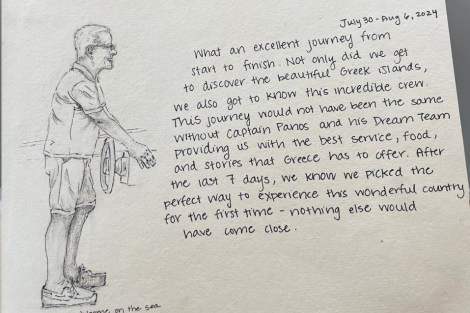 July 30 - Aug 6, 2024
What an excellent journey from
start to finish. Not only did we get
to discover the beautiful Greek islands,
we also got to know this incredible crew.
This journey would not have been the same
without Captain Panos and his Dream Team
providing us with the best service, food,
and stories that Greece has to offer. After
the last 7 days, we know we picked the
perfect way to experience this wonderful country
for the first time - nothing else would
have come close.
on the sea